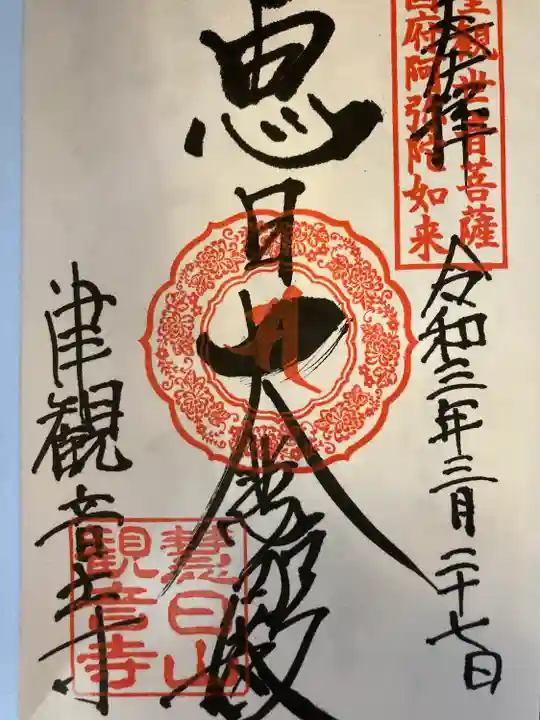 奉拝
聖観世音菩薩
国府阿弥陀如来
令和三年三月二十七日
恵日山
大悲殿
津観音寺
慧日山
観音寺